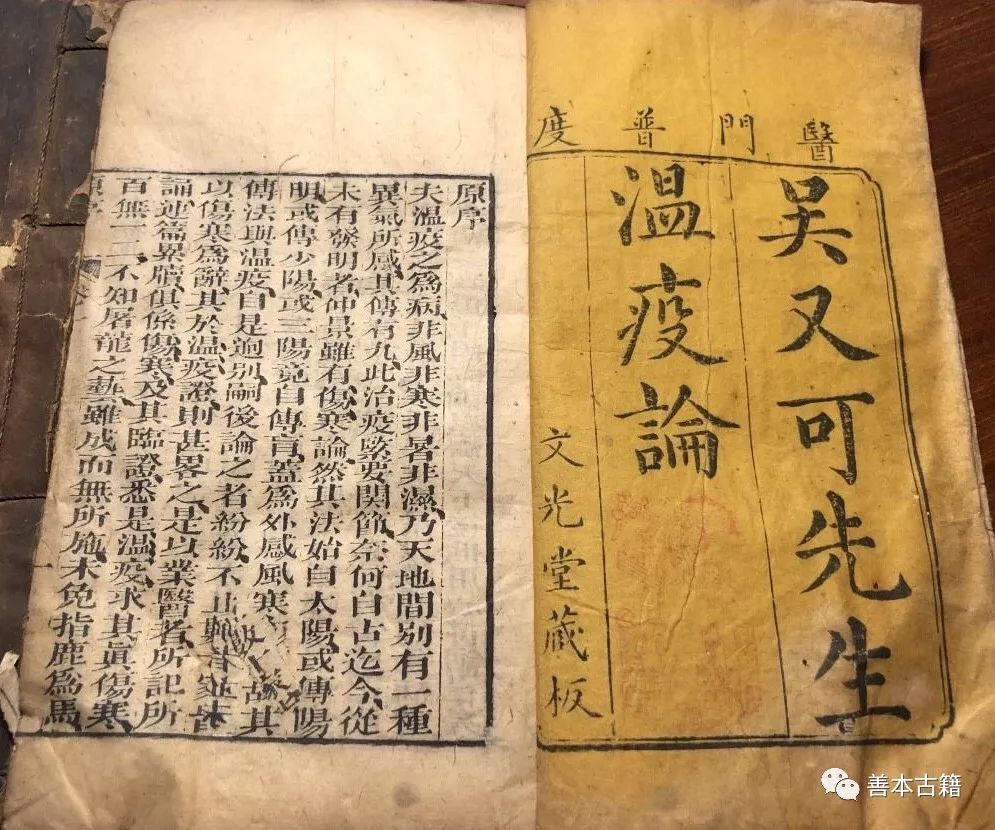 醫門普度
吳又可先生
溫疫論
文光堂藏板
原序
夫溫疫之為病非風非寒非暑非濕乃天地間別有一種
異氣所感其傳有九此治疫緊要関節奈何自古迄今從
未有發明者仲景雖有傷寒論然其法始自太陽或傳陽
明或傳少陽或三陽竟自傳胃蓋為外感風寒故其
傳法與溫疫自是逈別嗣後論之者紛紛不止皆
以傷寒為辭其於溫疫證則甚畧之是以業醫者所記所
論連篇累牘俱係傷寒及其臨證悉是溫疫求其真傷寒
百無一二不知屠龍之藝雖成而無所施未免指鹿為馬
善本古籍